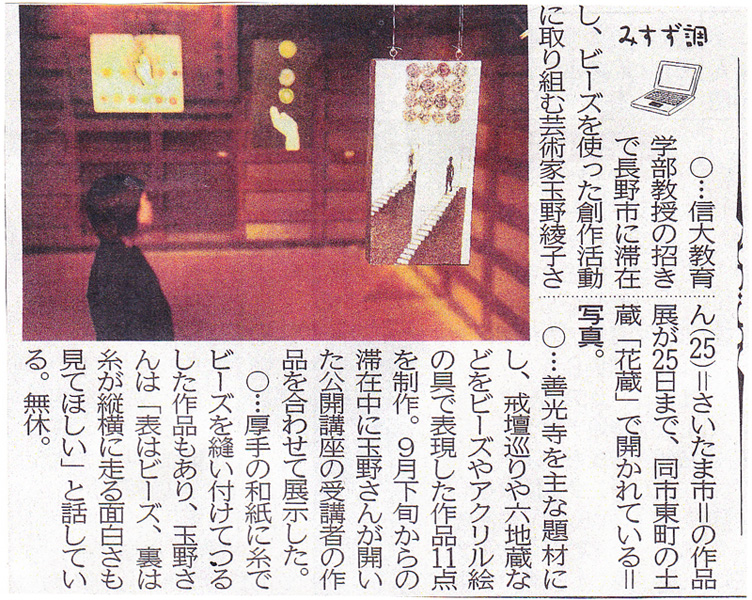 みすず調
○…信大教育
学部教授の招き
で長野市に滞在
し、ビーズを使った創作活動
に取り組む芸術家玉野綾子さ
ん(25)＝さいたま市＝の作品
展が25日まで、同市東町の土
蔵「花蔵」で開かれている＝
写真。
○…善光寺を主な題材に
し、戒壇巡りや六地蔵な
どをビーズやアクリル絵
の具で表現した作品11点
を制作。９月下旬からの
滞在中に玉野さんが開い
た公開講座の受講者の作
品を合わせて展示した。
○…厚手の和紙に糸で
ビーズを縫い付けてつる
した作品もあり、玉野さ
んは「表はビーズ、裏は
糸が縦横に走る面白さも
見てほしい」と話してい
る。無休。